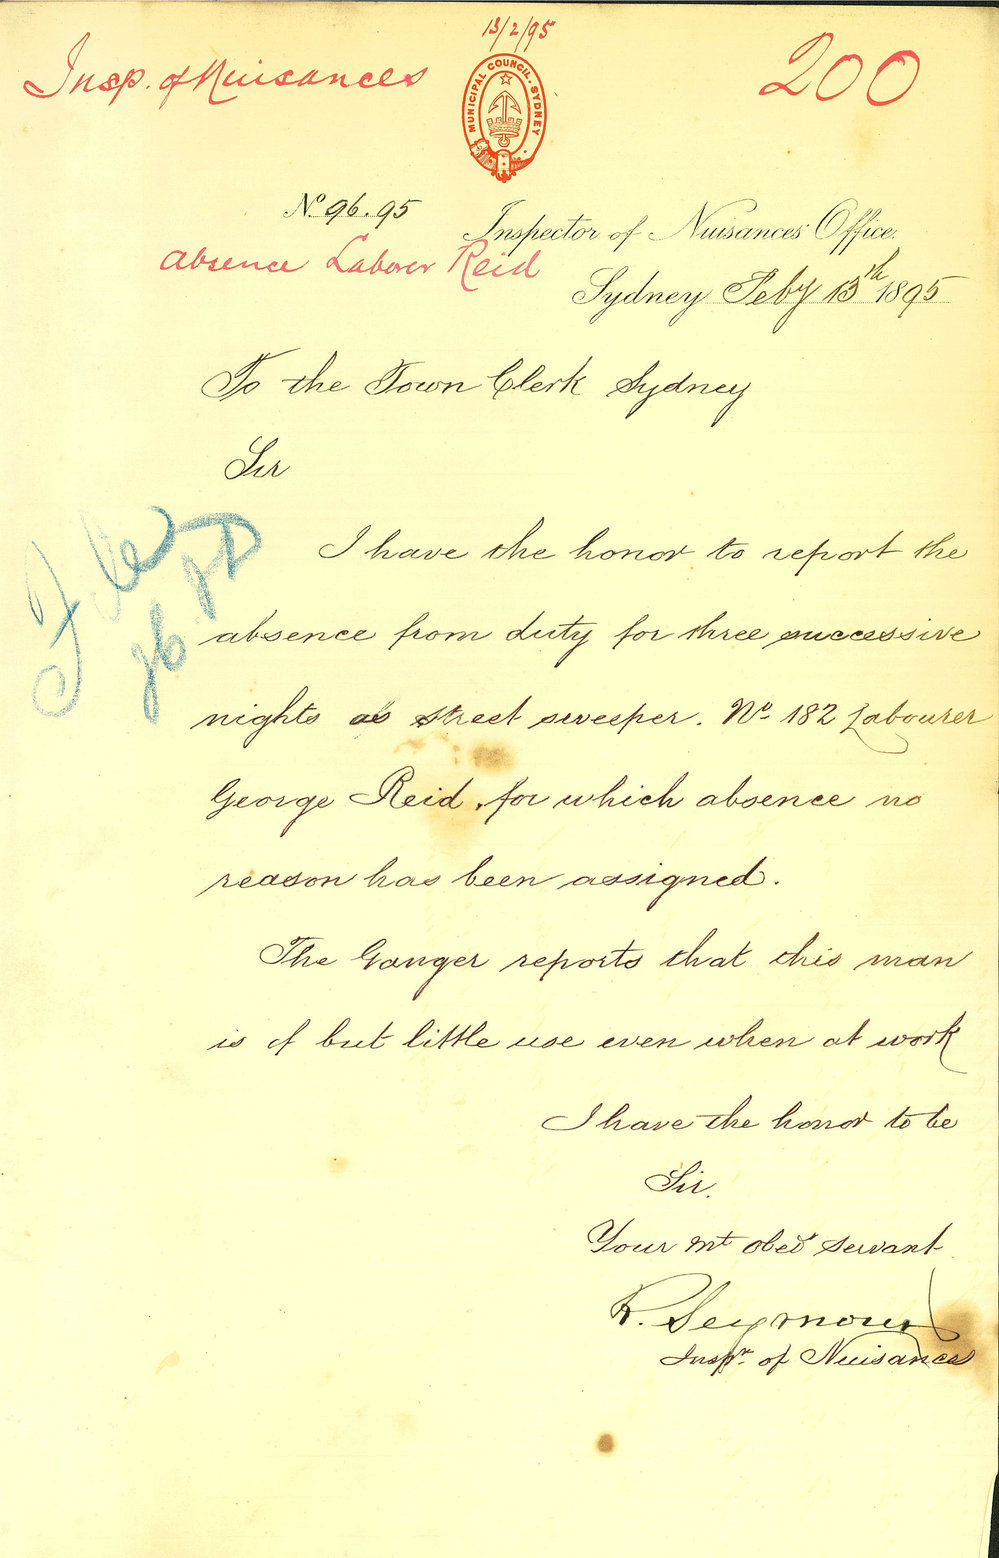 13/2/95
Insp. of Nuisances
200
MUNICIPAL COUNCIL. SYDNEY
No. 96.95
Inspector of Nuisances' Office.
absence Laborer Reid
Sydney Feby 13th 1895
To the Town Clerk Sydney
Sir
I have the honor to report the
absence from duty for three successive
nights as street sweeper. No. 182 Labourer
George Reid, for which absence no
reason has been assigned.
The Ganger reports that this man
is of but little use even when at work
I have the honor to be
Sir.
Your mt obed servant
R. Seymour
Inspr. of Nuisances
File